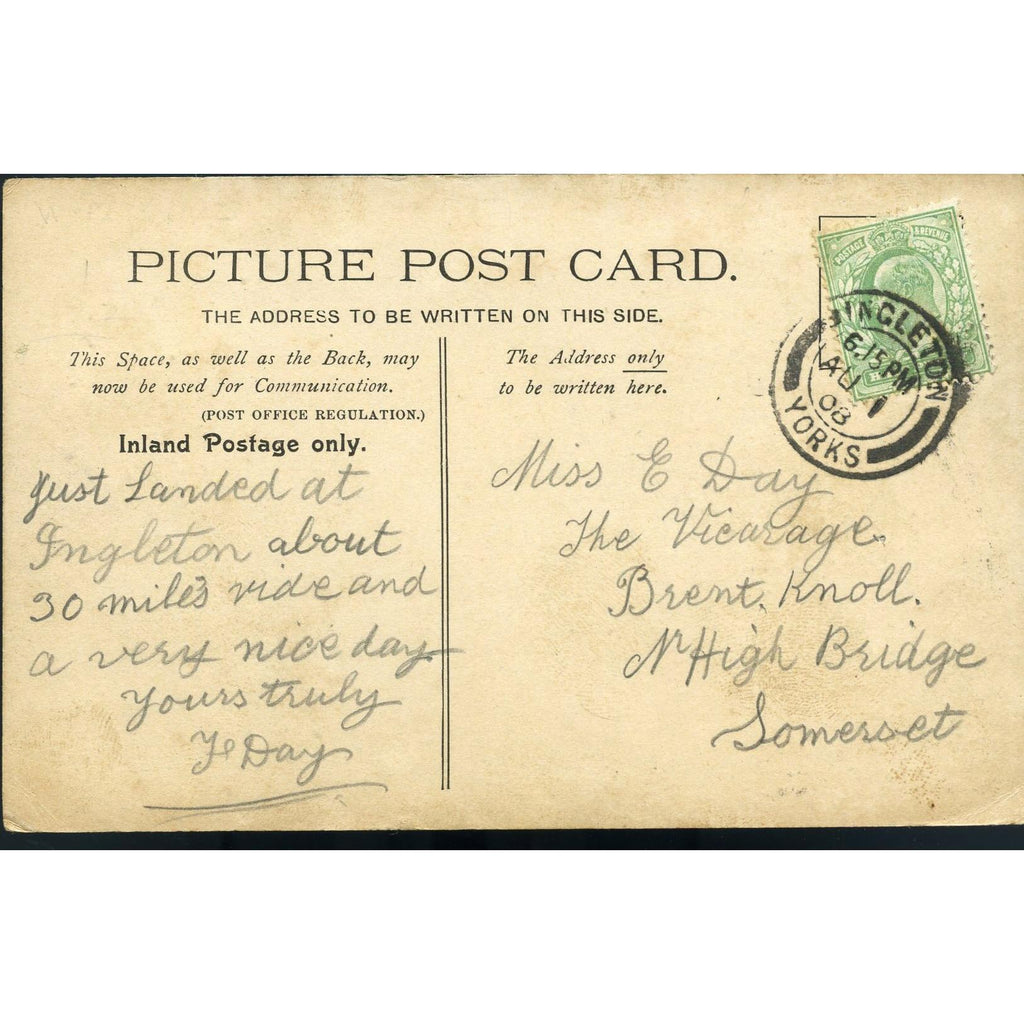 PICTURE POST CARD.
THE ADDRESS TO BE WRITTEN ON THIS SIDE.
This Space, as well as the Back, may
now be used for Communication.
(POST OFFICE REGULATION.)
Inland Postage only.
Just Landed at
Ingleton about
30 miles ride and
a very nice day
Yours truly
Day
The Address only
to be written here.
Miss E Day
The Vicarage
Brent. Knoll.
Nr High Bridge
Somerset
POSTAGE & REVENUE
INGLETON
6.15 PM
AU 1
08
YORKS